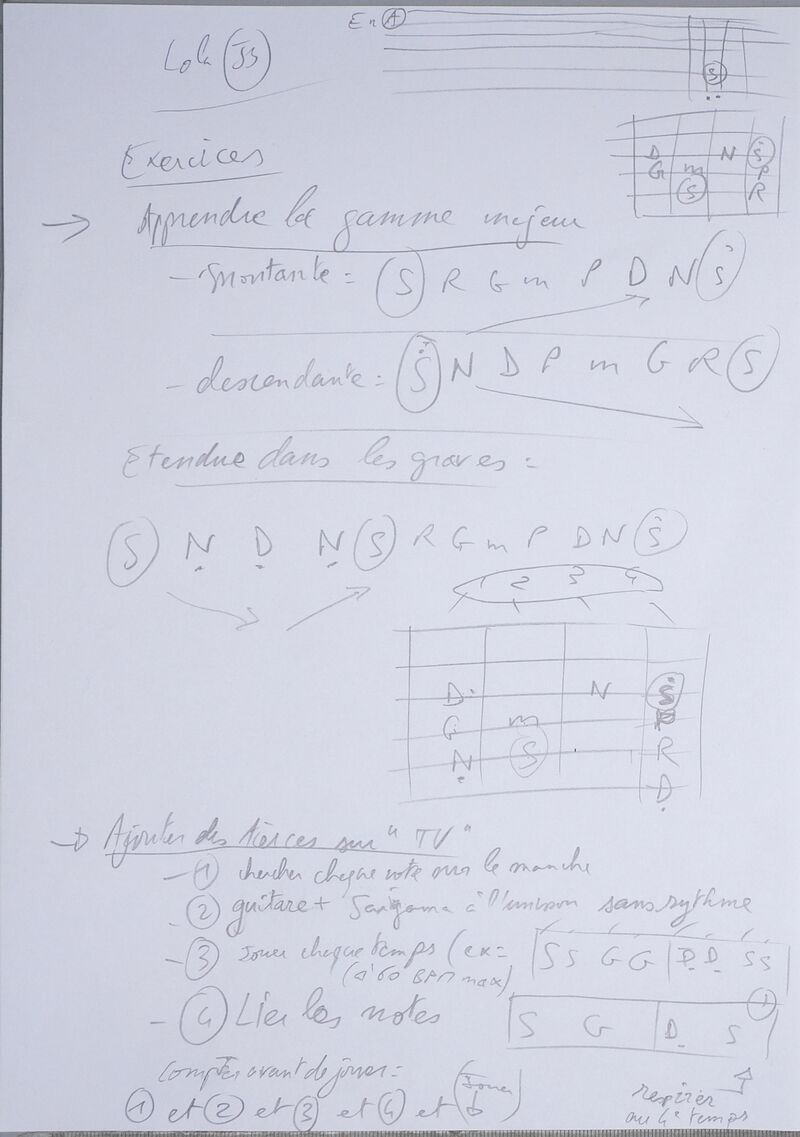 En A
Lola
S
Exercices
D N Ṡ
G m P
S R
→ Apprendre la gamme majeur
- montante = S R G m P D N Ṡ
- descendante = Ṡ N D P m G R S
Etendue dans les graves =
S Ṇ Ḍ Ṇ S R G m P D N Ṡ
1 2 3 4
D N Ṡ
G m P
Ṇ S R
Ḍ
→ Ajouter des tierces sur "TV"
- 1 chercher chaque note sur le manche
- 2 guitare + Sargama à l'unisson sans rythme
- 3 Jouer chaque temps (ex = S S G G | Ḍ Ḍ S S
(à 60 BPM max)
- 4 Lier les notes S G | Ḍ S
Compter avant de jouer =
1 et 2 et 3 et 4 et (Jouer
respirer
au 4e temps